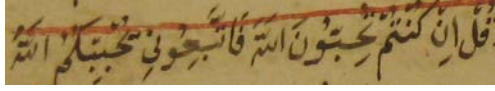 قُلْ اِنْ كُنْتُمْ تُحِبُّونَ اللّٰهَ فَاتَّبِعُونِي يُحْبِبْكُمُ اللّٰهُ